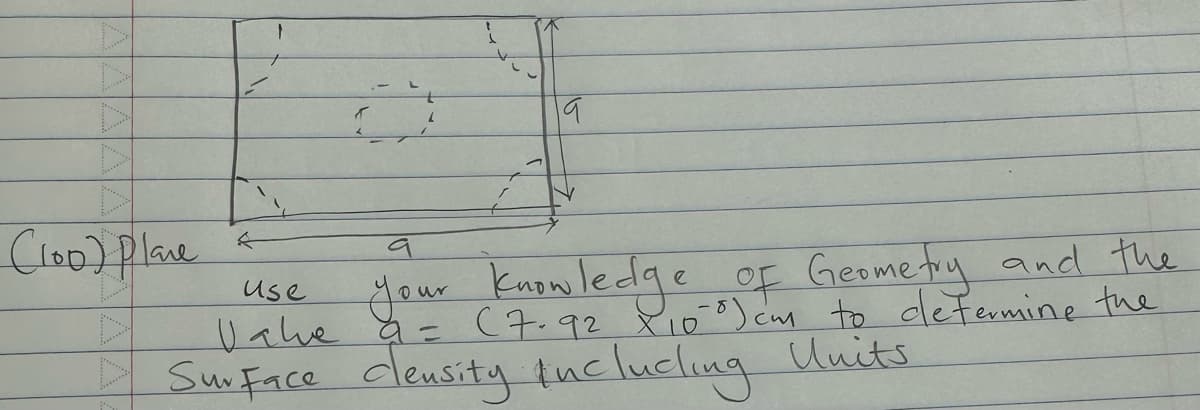 a
(100) Plane
a
use your knowledge of Geometry and the
Value a = (7.92 X10⁻⁸) cm to determine the
Surface density including Units